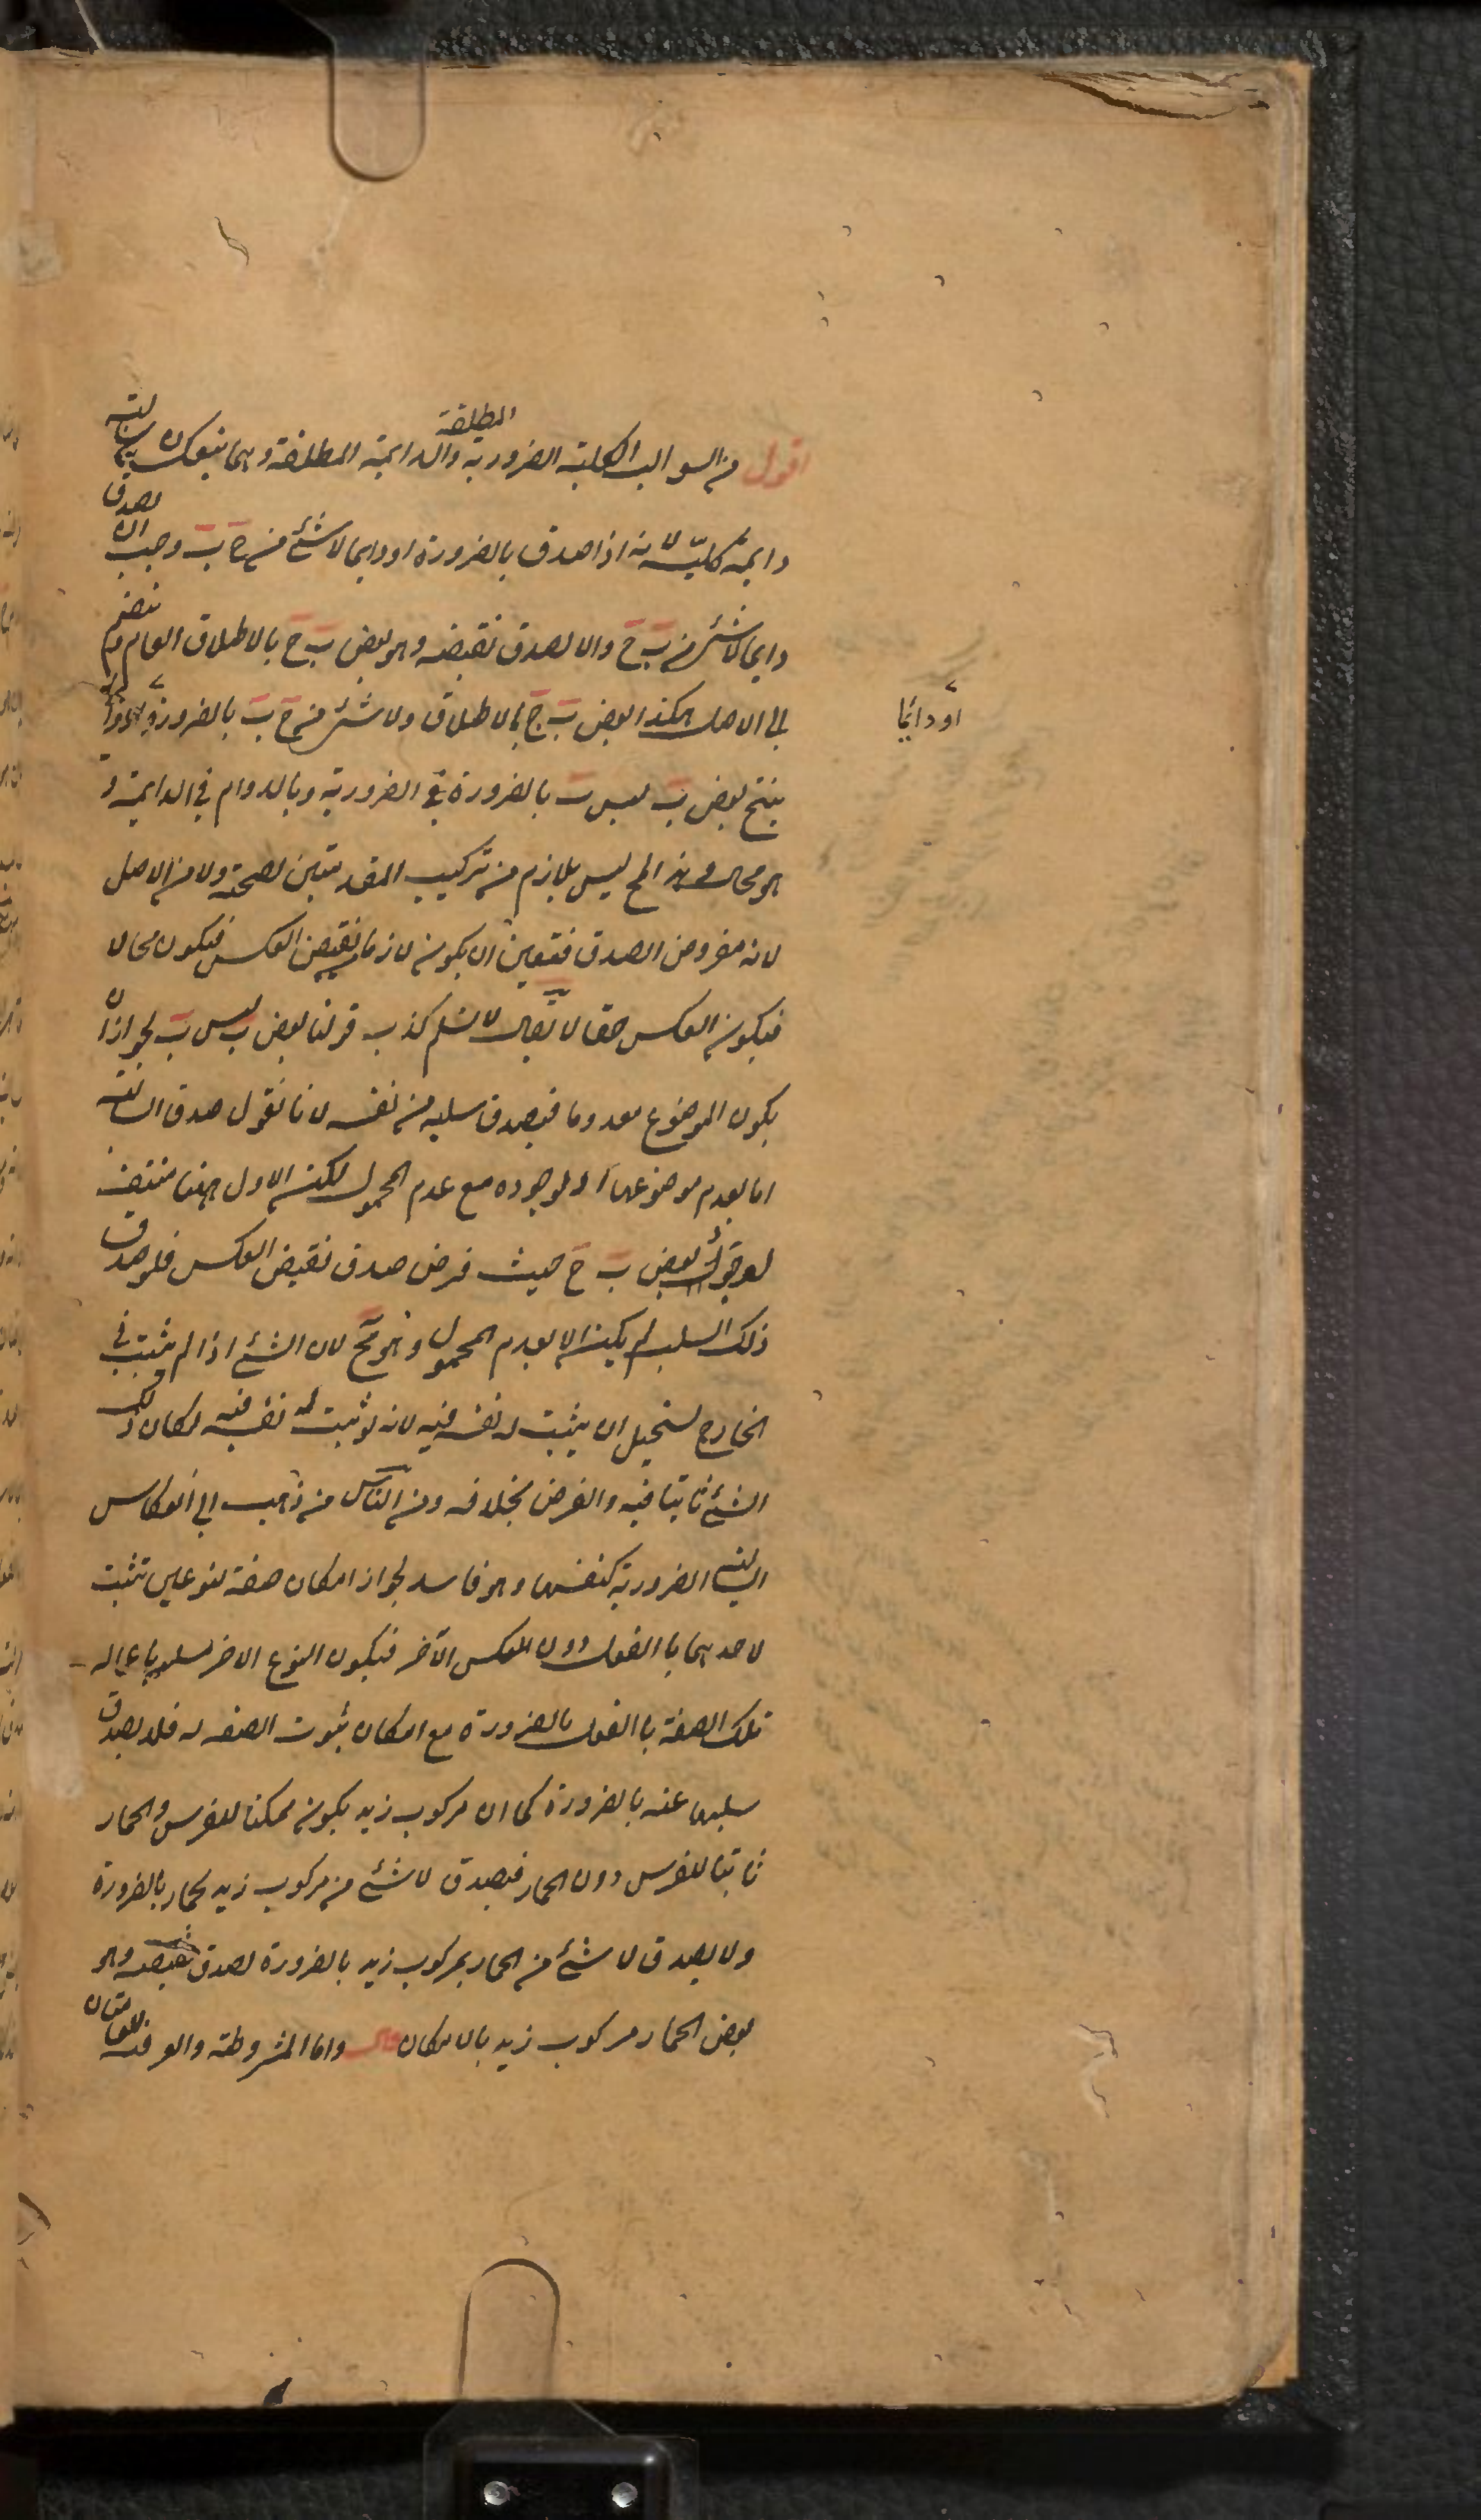 اقول من السوالب الكلية الضرورية المطلقة والدايمة المطلقة وهما ينعكسان سالبة
دايمة كلية لانه اذا صدق بالضرورة او دايما لا شئ من ج ب وجب ان يصدق
دايما لا شئ من ب ج والا لصدق نقيضه وهو بعض ب ج بالاطلاق العام وينضم
الى الاصل هكذا بعض ب ج بالاطلاق ولا شئ من ج ب بالضرورة
او دائما
ينتج بعض ب ليس ب بالضرورة في الضرورية وبالدوام في الدايمة و
هو محال وهذا المح ليس بلازم من تركيب المقدمتين لصحته ولا من الاصل
لانه مفروض الصدق فتعين ان يكون لازما من نقيض العكس فيكون محالا
فيكون العكس حقا لا يقال لا نسلم كذب قولنا بعض ب ليس ب لجواز ان
يكون الموضوع معدوما فيصدق سلبه من نفسه لانا نقول صدق السالبة
اما بعدم موضوعها او لوجوده مع عدم المحمول لكن الاول ههنا منتف
لوجود بعض ب ج حيث فرض صدق نقيض العكس فلو صدق
ذلك السلب لم يكن الا بعدم المحمول وهو مح لان الشئ اذا لم يثبت في
الخارج يستحيل ان يثبت له نفسه فيه لانه لو ثبت له نفسه فيه لكان ذلك
الشئ ثابتا فيه والفرض بخلافه ومن الناس من ذهب الى انعكاس
السالبة الضرورية كنفسها وهو فاسد لجواز امكان صفة لنوعين تثبت
لاحدهما با الفعل دون العكس الآخر فيكون النوع الاخر مسلوبا عما له
تلك الصفة با الفعل بالضرورة مع امكان ثبوت الصفة له فلا يصدق
سلبها عنه بالضرورة كما ان مركوب زيد يكون ممكنا للفرس والحمار
ثابتا للفرس دون الحمار فيصدق لا شئ من مركوب زيد بحمار بالضرورة
ولا يصدق لا شئ من الحمار بمركوب زيد بالضرورة لصدق نقيضه وهو
بعض الحمار مركوب زيد بالامكان قال واما المشروطة والعرفية العامتان